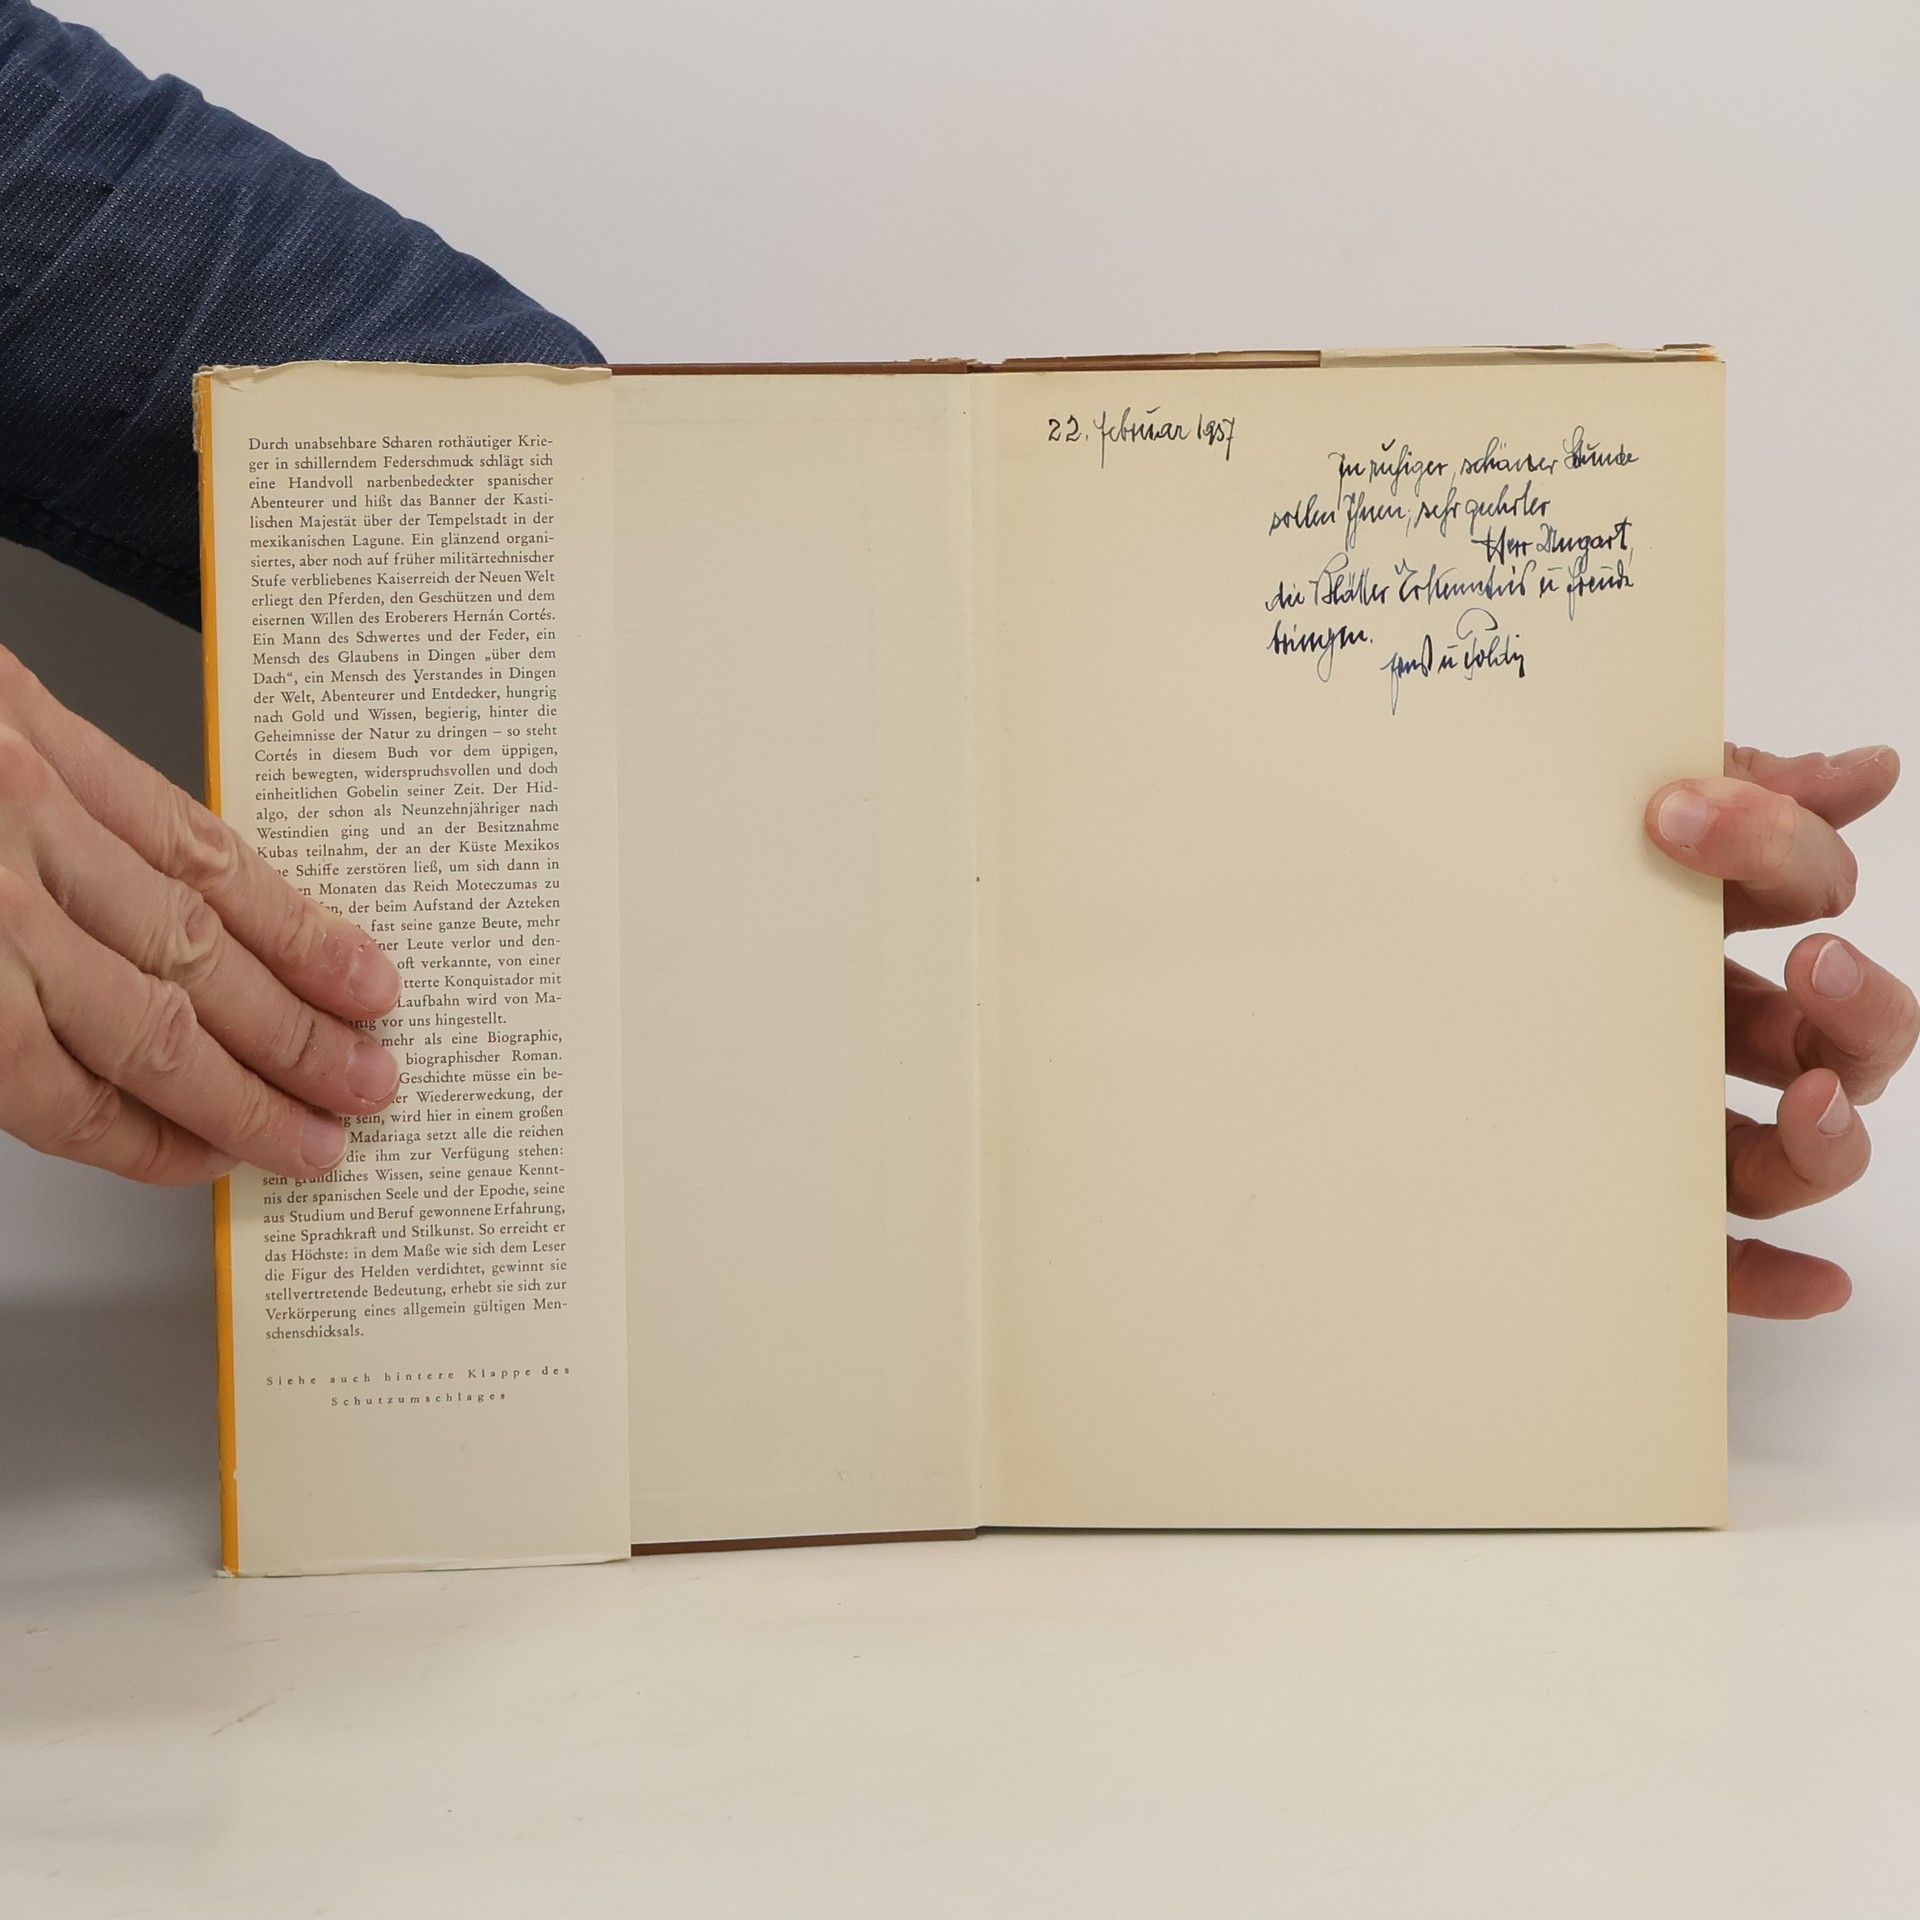 Durch unabsehbare Scharen rothäutiger Krie-
ger in schillerndem Federschmuck schlägt sich
eine Handvoll narbenbedeckter spanischer
Abenteurer und hißt das Banner der Kasti-
lischen Majestät über der Tempelstadt in der
mexikanischen Lagune. Ein glänzend organi-
siertes, aber noch auf früher militärtechnischer
Stufe verbliebenes Kaiserreich der Neuen Welt
erliegt den Pferden, den Geschützen und dem
eisernen Willen des Eroberers Hernán Cortés.
Ein Mann des Schwertes und der Feder, ein
Mensch des Glaubens in Dingen „über dem
Dach“, ein Mensch des Verstandes in Dingen
der Welt, Abenteurer und Entdecker, hungrig
nach Gold und Wissen, begierig, hinter die
Geheimnisse der Natur zu dringen – so steht
Cortés in diesem Buch vor dem üppigen,
reich bewegten, widerspruchsvollen und doch
einheitlichen Gobelin seiner Zeit. Der Hid-
algo, der schon als Neunzehnjähriger nach
Westindien ging und an der Besitznahme
Kubas teilnahm, der an der Küste Mexikos
Schiffe zerstören ließ, um sich dann in
Monaten das Reich Moteczumas zu
der beim Aufstand der Azteken
fast seine ganze Beute, mehr
Leute verlor und den-
oft verkannte, von einer
Konquistador mit
Laufbahn wird von Ma-
vor uns hingestellt.
mehr als eine Biographie,
biographischer Roman.
Geschichte müsse ein be-
Wiedererweckung, der
sein, wird hier in einem großen
Madariaga setzt alle die reichen
die ihm zur Verfügung stehen:
sein gründliches Wissen, seine genaue Kennt-
nis der spanischen Seele und der Epoche, seine
aus Studium und Beruf gewonnene Erfahrung,
seine Sprachkraft und Stilkunst. So erreicht er
das Höchste: in dem Maße wie sich dem Leser
die Figur des Helden verdichtet, gewinnt sie
stellvertretende Bedeutung, erhebt sie sich zur
Verkörperung eines allgemein gültigen Men-
schenschicksals.
Siehe auch hintere Klappe des
Schutzumschlages
22. Februar 1957
In ruhiger, schöner Stunde
sollen Ihnen, sehr geehrter
Herr
die Blätter Erkenntnis u Freude
bringen.